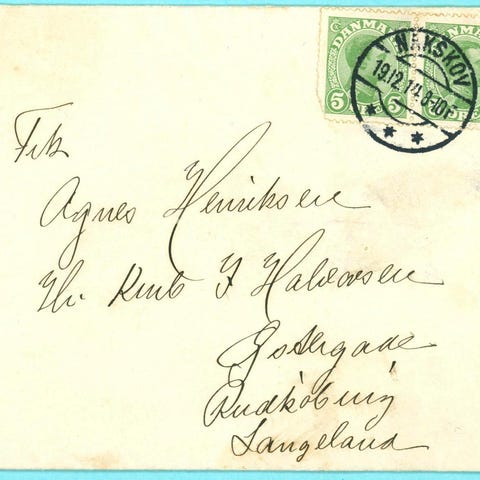 DANMARK
5 5
NAKSKOV
19.12.14.8-10F
Frk
Agnes Henriksen
Hr. Kmb J Halvorsen
Østergade
Rudkøbing
Langeland